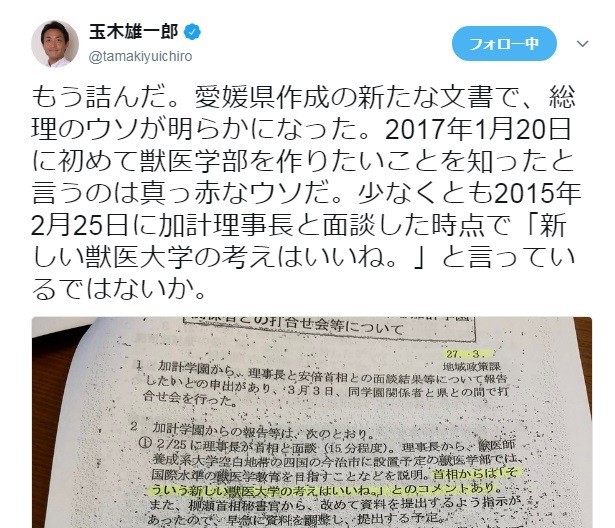 玉木雄一郎
@tamakiyuichiro
フォロー中
もう詰んだ。愛媛県作成の新たな文書で、総
理のウソが明らかになった。2017年1月20日
に初めて獣医学部を作りたいことを知ったと
言うのは真っ赤なウソだ。少なくとも2015年
2月25日に加計理事長と面談した時点で「新
しい獣医大学の考えはいいね。」と言ってい
るではないか。
関係者との打合せ会等について
27. 3.
地域政策課
1 加計学園から、理事長と安倍首相との面談結果等について報告
したいとの申出があり、3月3日、同学園関係者と県との間で打
合せ会を行った。
2 加計学園からの報告等は、次のとおり。
① 2/25に理事長が首相と面談(15分程度)。理事長から、獣医師
養成系大学空白地帯の四国の今治市に設置予定の獣医学部では、
国際水準の獣医学教育を目指すことなどを説明。首相からは「そ
ういう新しい獣医大学の考えはいいね。」とのコメントあり。
また、柳瀬首相秘書官から、改めて資料を提出するよう指示が
あったので、早急に資料を調整し、提出する予定。